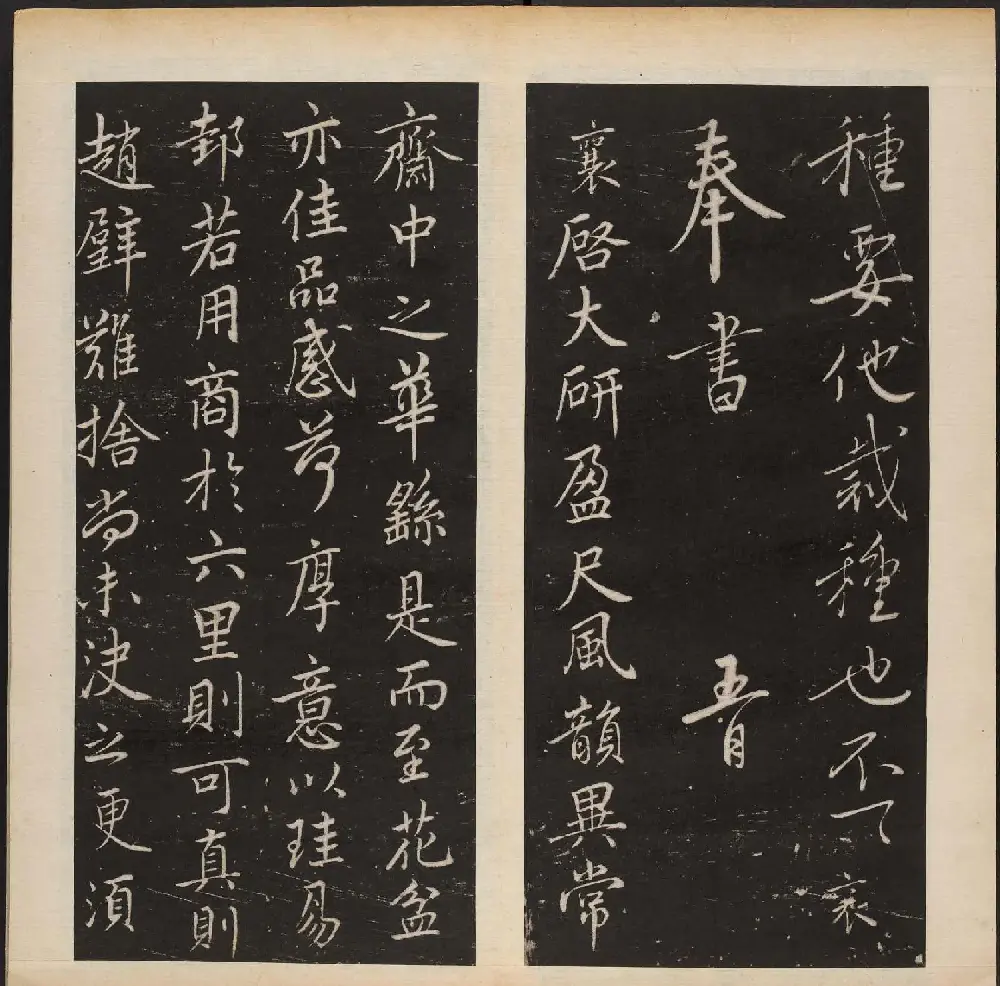 種要他栽種也不一一襄
奉書 五月
襄啓大研盈尺風韻異常
齋中之華繇是而至花盆
亦佳品感荷厚意以珪易
邽若用商於六里則可真則
趙璧難捨尚未決之更須